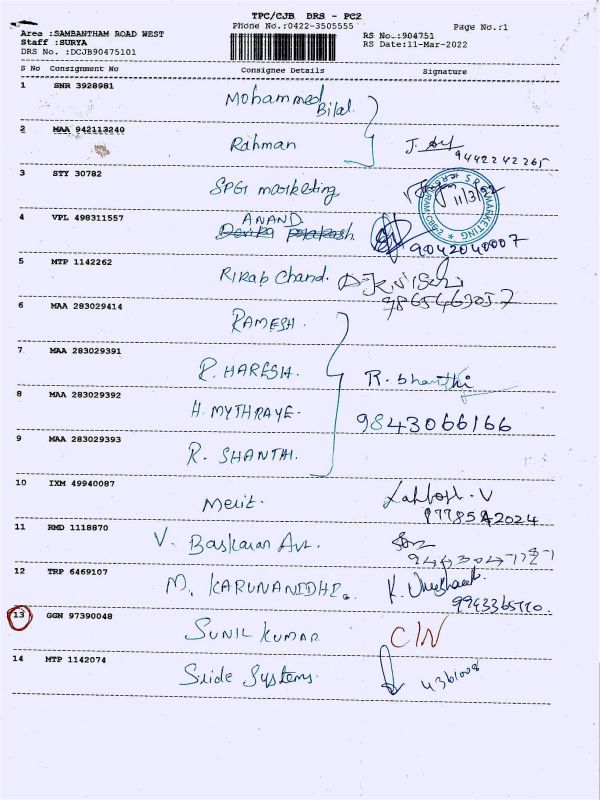 TPC/CJB DRS - PC2
Phone No.:0422-3505555 Page No.:1
Area :SAMBANTHAM ROAD WEST
Staff :SURYA RS No.:904751
DRS No. :DCJB90475101 RS Date:11-Mar-2022
S No Consignment No Consignee Details Signature
1 SNR 3928981 Mohammed Bilal
2 MAA 942113240 Rahman 9442242265
3 STY 30782 SPGI marketing 11/3/22
4 VPL 498311557 ANAND 9042040007
5 MTP 1142262 Rikab Chand. 9865463057
6 MAA 283029414 RAMESH.
7 MAA 283029391 R. HARESH. R. Shanthi
8 MAA 283029392 H. MYTHRAYE. 9843066166
9 MAA 283029393 R. SHANTHI.
10 IXM 49940087 Merit.
11 RMD 1118870 V. Baskaran
12 TRP 6469107 M. KARUNANIDHI.
13 GGN 97390048 SUNIL KUMAR C/N
14 MTP 1142074 Slide Systems.